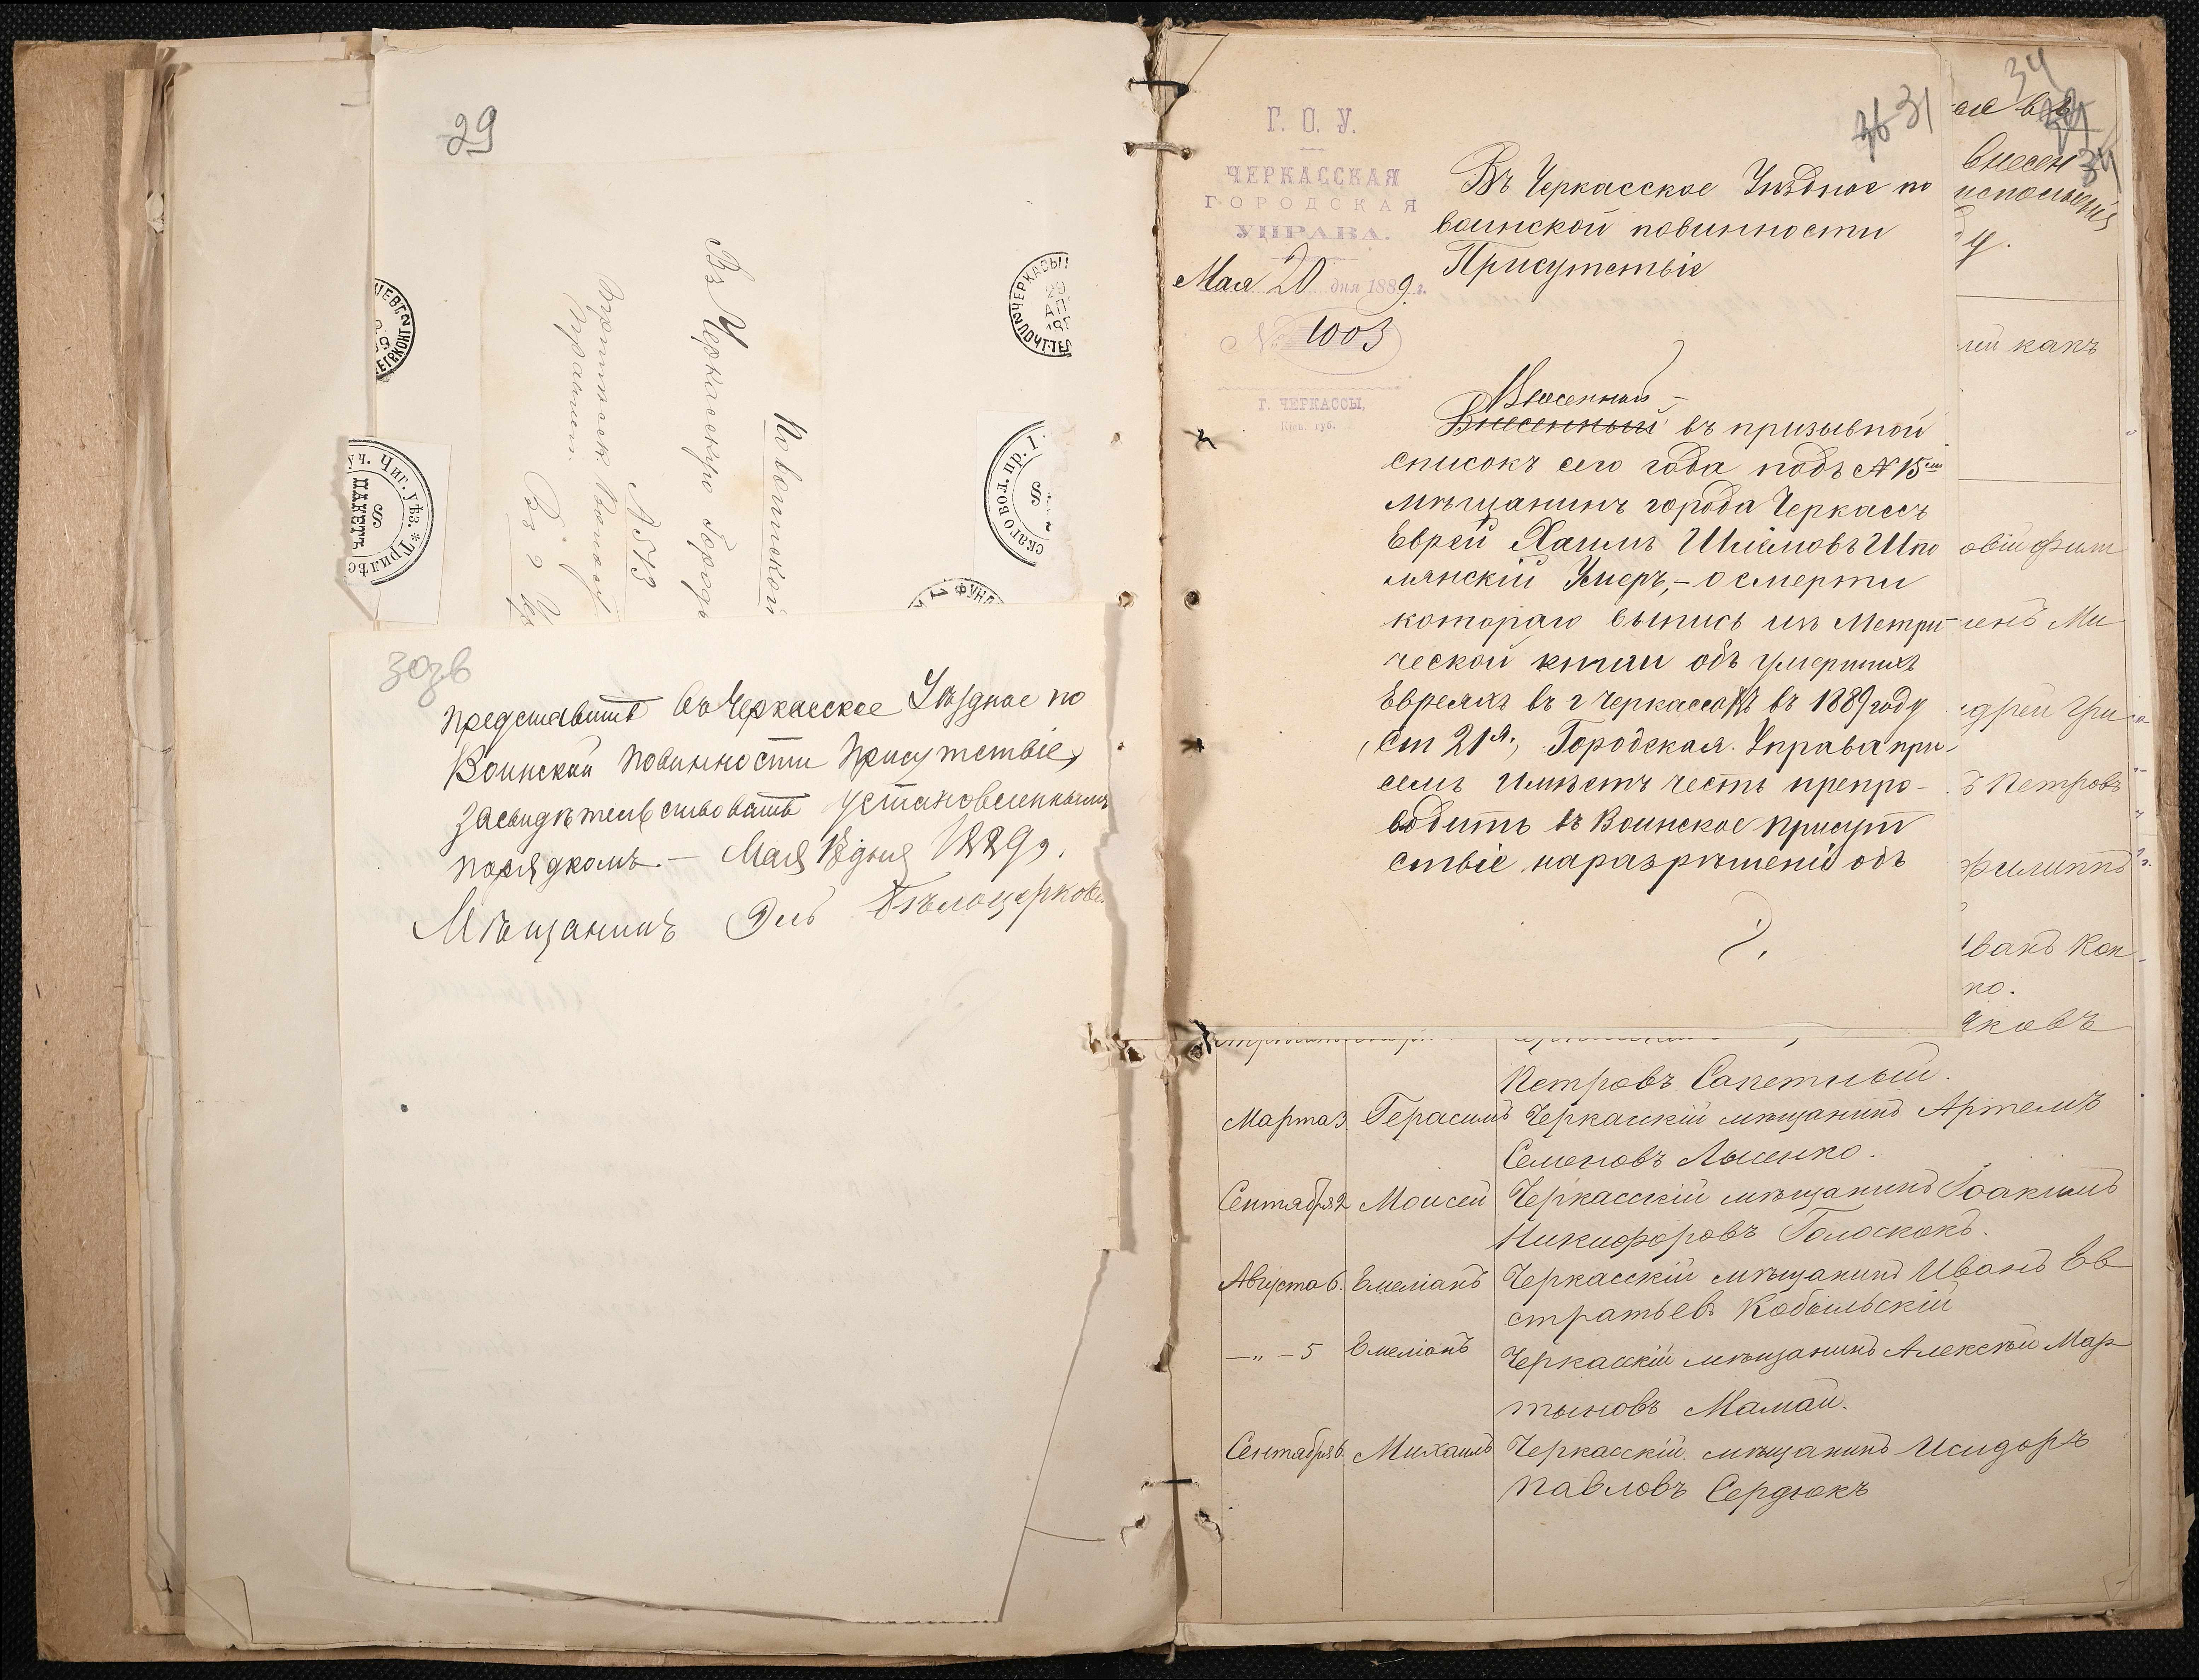 29
По воинской
Въ Черкасскую Городс
№ 513
Въ г. Че
ЧЕРКАСЫ
ПОЧТ. ТЕЛ
Уч. Чиг. уѣз. * Трилѣс
ПАКЕТЪ
скаго вол. пр. 1
30зв
представить въ Черкасское Уѣздное по
Воинской повинности присутствіе,
засвидѣтельствовать установленнымъ
порядкомъ. — Мая 18 дня 1889 г.
Мѣщанинъ Эль Бѣлоцерков
Г. О. У.
ЧЕРКАССКАЯ
ГОРОДСКАЯ
УПРАВА.
Мая 20 дня 1889 г.
№ 1003
Г. ЧЕРКАССЫ,
Кіев. губ.
36 31
Въ Черкасское Уѣздное по
воинской повинности
Присутствіе
Внесенный
Внесенный въ призывной
списокъ сего года подъ № 15
мѣщанинъ города Черкассъ
Еврей Хаимъ Шлемовъ Шпо
лянскій Умеръ, – о смерти
котораго выпись изъ Метри-
ческой книги объ умершихъ
Евреяхъ въ г Черкассахъ въ 1889 году
ст 21я., Городская Управа при-
семъ Имѣетъ честь препро-
водить въ Воинское присут
ствіе на разрѣшеніе объ
34
34
внесен
исполненія
лей какъ
овій Фили
ленъ Ми
дрей Гри
ъ Петровъ
Филиппъ
Иванъ Кон
но.
Яковъ
Петровъ Сапетный.
Марта 3. Герасимъ Черкаскій мѣщанинъ Артемъ
Семеновъ Лысенко.
Сентября 2 Моисей Черкасскій мѣщанинъ Іоакимъ
Никифоровъ Голоскокъ.
Августа 6. Емеліанъ Черкасскій мѣщанинъ Иванъ Ев
стратьевъ Кобыльскій
— „ — 5 Емеліанъ Черкасскій мѣщанинъ Алексѣй Мар
тыновъ Мамай.
Сентября 6. Михаилъ Черкасскій мѣщанинъ Исидоръ
Павловъ Сердюкъ